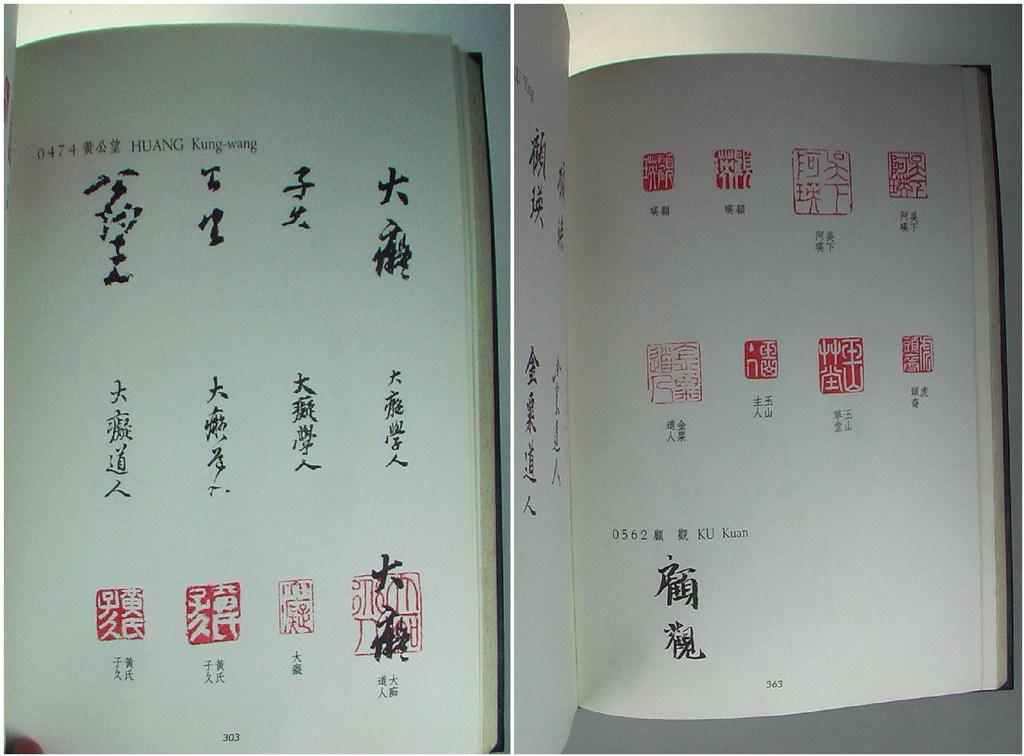 0474 黃公望 HUANG Kung-wang
公望
子久
大癡
大癡道人
大癡學人
大癡學人
大癡
黃氏
子久
黃氏
子久
大癡
大痴
道人
303
顧瑛
金粟道人
金粟道人
顧瑛
顧瑛
吳下
阿瑛
吳下
阿瑛
金粟
道人
玉山
主人
玉山
草堂
虎
頭裔
0562 顧 觀 KU Kuan
顧觀
363